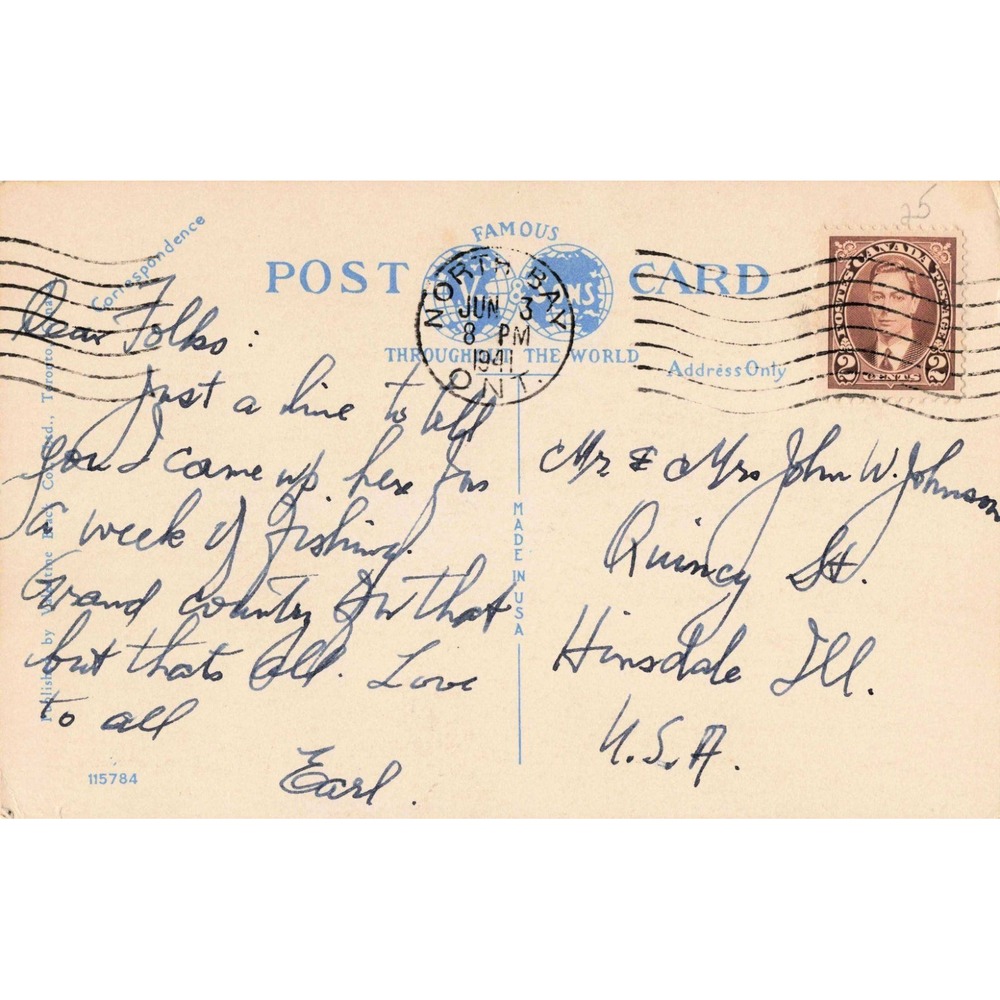 25
Correspondence
FAMOUS
POST CARD
V & SONS
THROUGHOUT THE WORLD
Address Only
NORTH BAY
JUN 3
8 PM
1941
ONT.
POSTES CANADA POSTAGE
2 CENTS 2
Dear Folks:
Just a line to tell
you I came up here for
a week of fishing.
Grand country for that
but thats all. Love
to all
Earl.
MADE IN USA
Mr & Mrs John W. Johnson
Quincy St.
Hinsdale Ill.
U.S.A.
Published by Valentine Black Co. Ltd., Toronto
115784